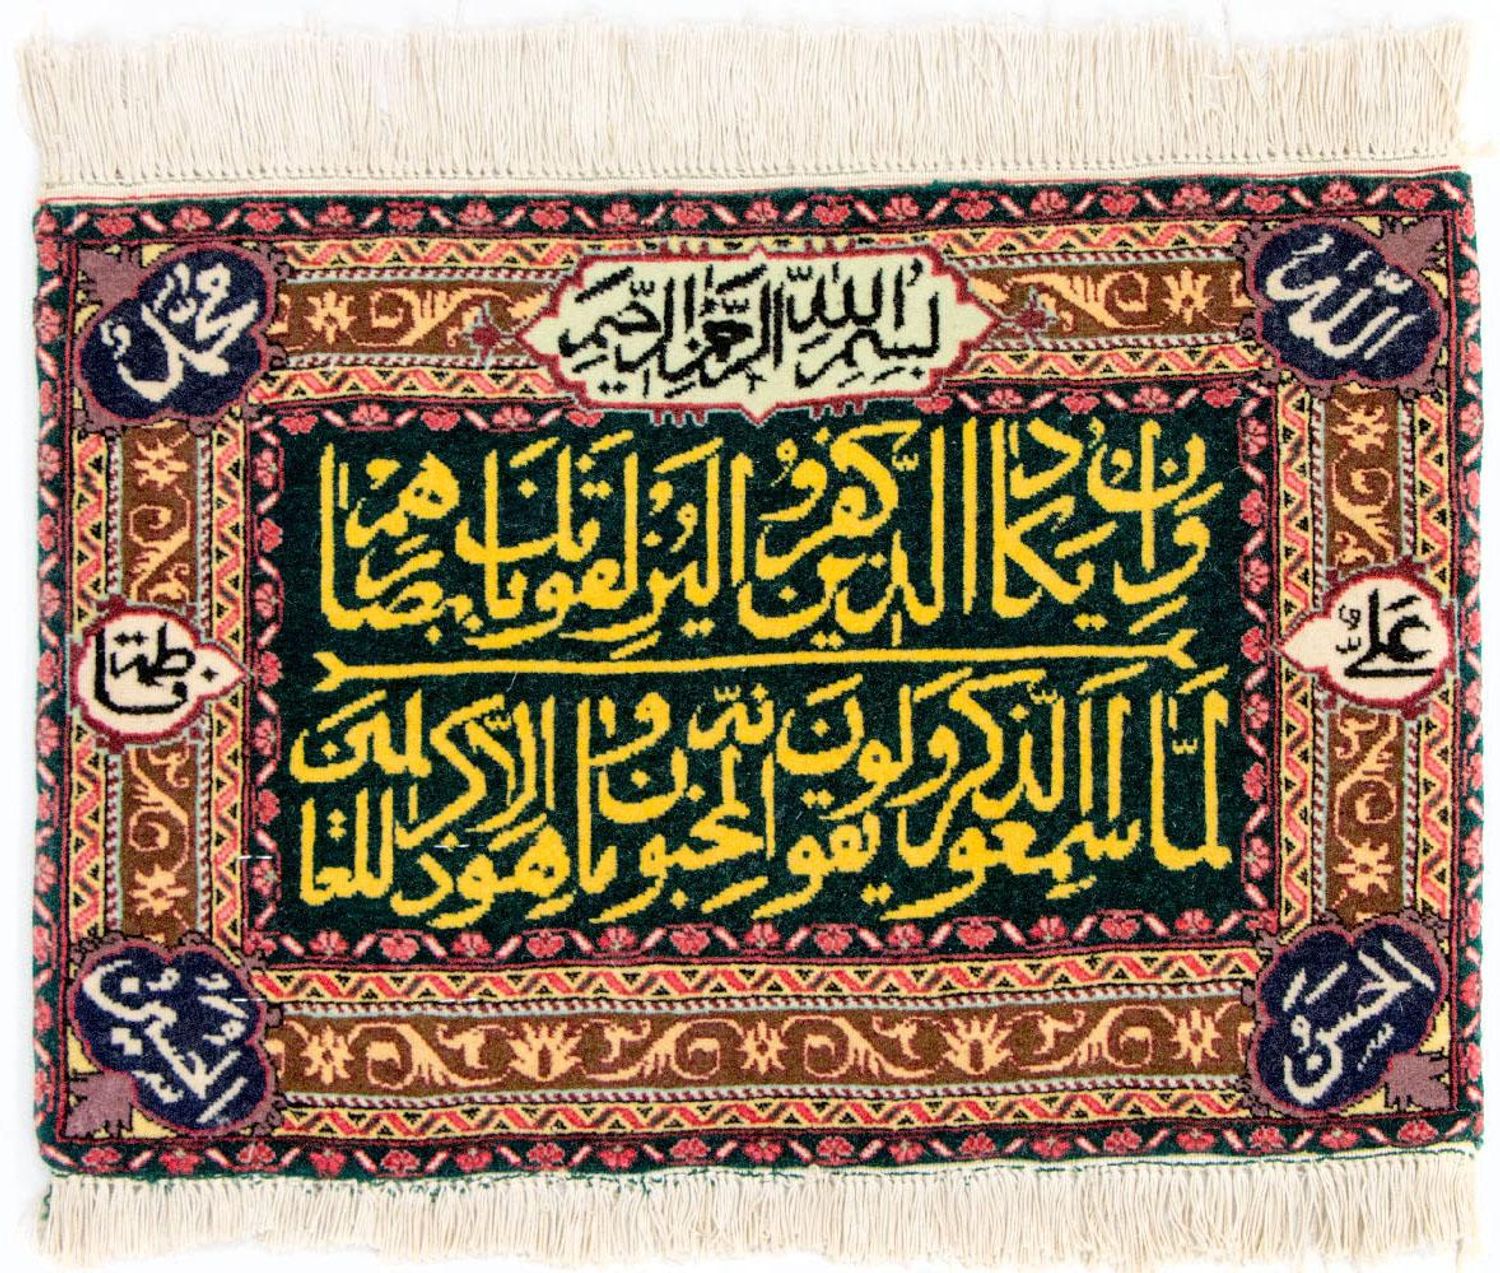 الله
بسم الله الرحمن الرحيم
محمد
وَإِن يكاد الذين كفروا ليزلقونك بابصارهم
لَمَّا سمعوا الذكر ويقولون انه لمجنون وما هو الا ذكر للعالمين
علي
فاطمة
الحسن
الحسين